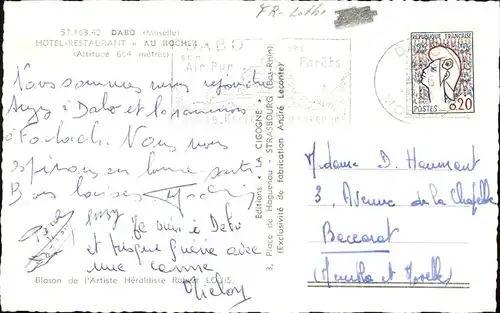 FR-Lothr
57.163.42 DABO (Moselle)
HOTEL-RESTAURANT « AU ROCHER »
(Altitude 664 mètres)
DABO
son
Air Pur
ses
Forêts
REPUBLIQUE FRANÇAISE
0,20
POSTES
Nous sommes venus rejoindre
à Dabo et
à Forbach. Nous vous
espérons en bonne santé
Bons baisers
Suzy
Je suis à Dabo
et presque guérie avec
une canne
Blason de l'Artiste Héraldiste Robert LOUIS.
Editions « LA CIGOGNE »
3, Place de Haguenau - STRASBOURG (Bas-Rhin)
(Exclusivité de fabrication André Leconte)
Madame D. Haumant
3, Avenue de la Chapelle
Baccarat
(Meurthe et Moselle)